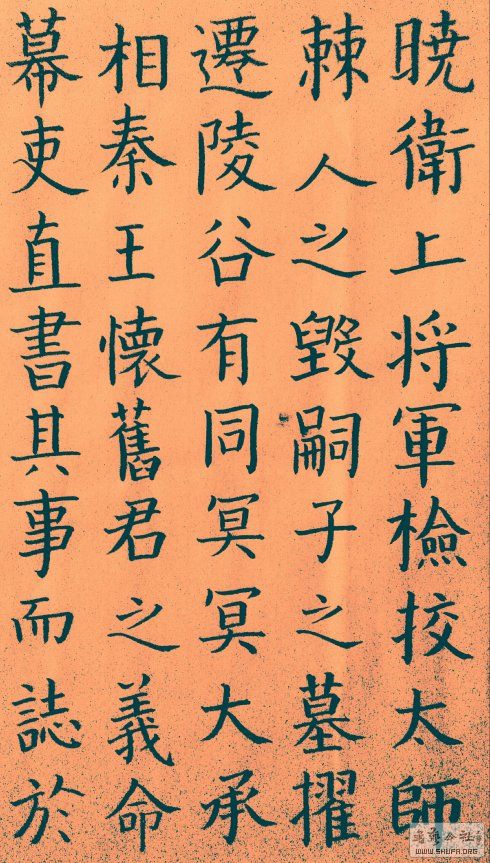 暁衛上将軍檢挍太師
棘人之毀嗣子之墓擢
遷陵谷有同冥冥大承
相秦王懷舊君之義命
幕吏直書其事而誌於
WWW.SHUFA.ORG